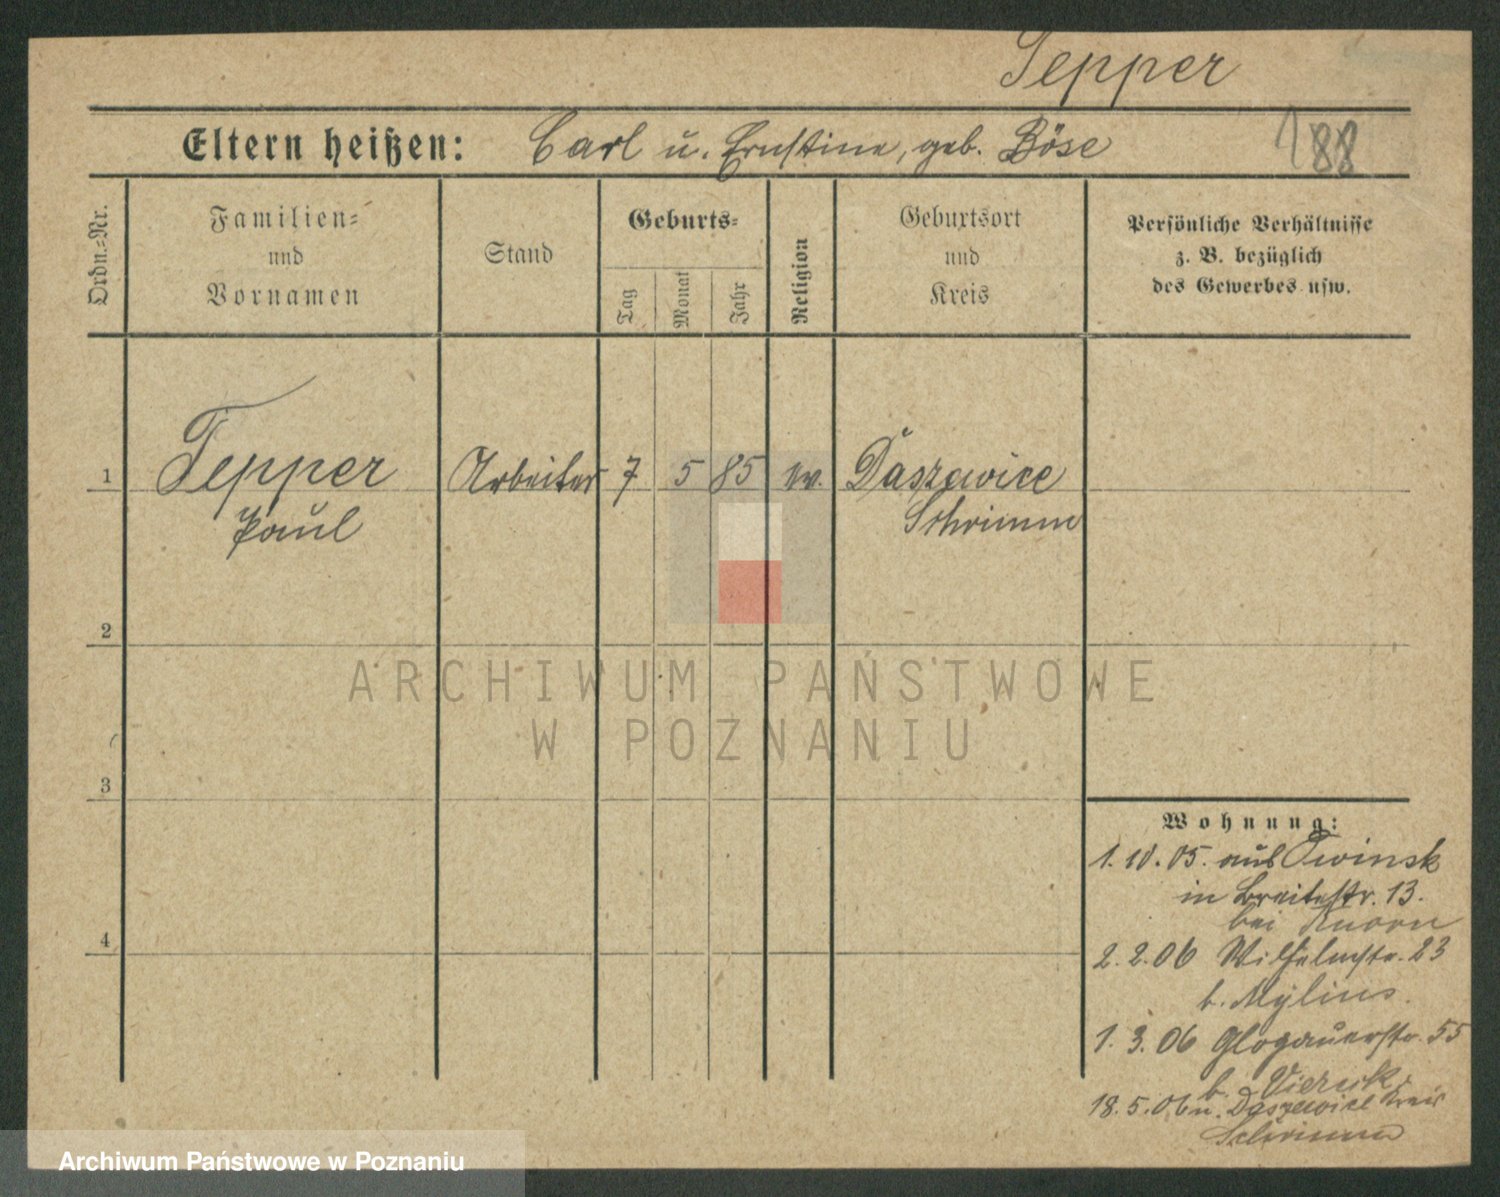 Tepper
Eltern heißen: Carl u. Ernstine, geb. Böse
188
Ordn.=Nr.
Familien=
und
Vornamen
Stand
Geburts=
Tag
Monat
Jahr
Religion
Geburtsort
und
Kreis
Persönliche Verhältnisse
z. B. bezüglich
des Gewerbes usw.
1 Tepper Arbeiter 7 5 85 ev. Daszewice
Paul Schrimm
2
3
4
Wohnung:
1. 10. 05. aus Owinsk
in Breitestr. 13.
bei Knorn
2. 2. 06 Wilhelmstr. 23
b. Mylius.
1. 3. 06 Glogauerstr. 55
b. Vierück
18. 5. 06 n. Daszewice Kreis
Schrimm
ARCHIWUM PAŃSTWOWE
W POZNANIU
Archiwum Państwowe w Poznaniu